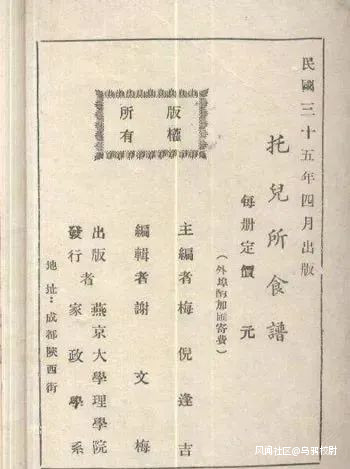 民國三十五年四月出版
托兒所食譜
每册定價　元
（外埠酌加匯寄費）
版權
所有
主編者梅倪逢吉
編輯者謝文梅
出版者燕京大學理學院
發行者家政學系
地址：成都陝西街
风闻社区@乌买校尉